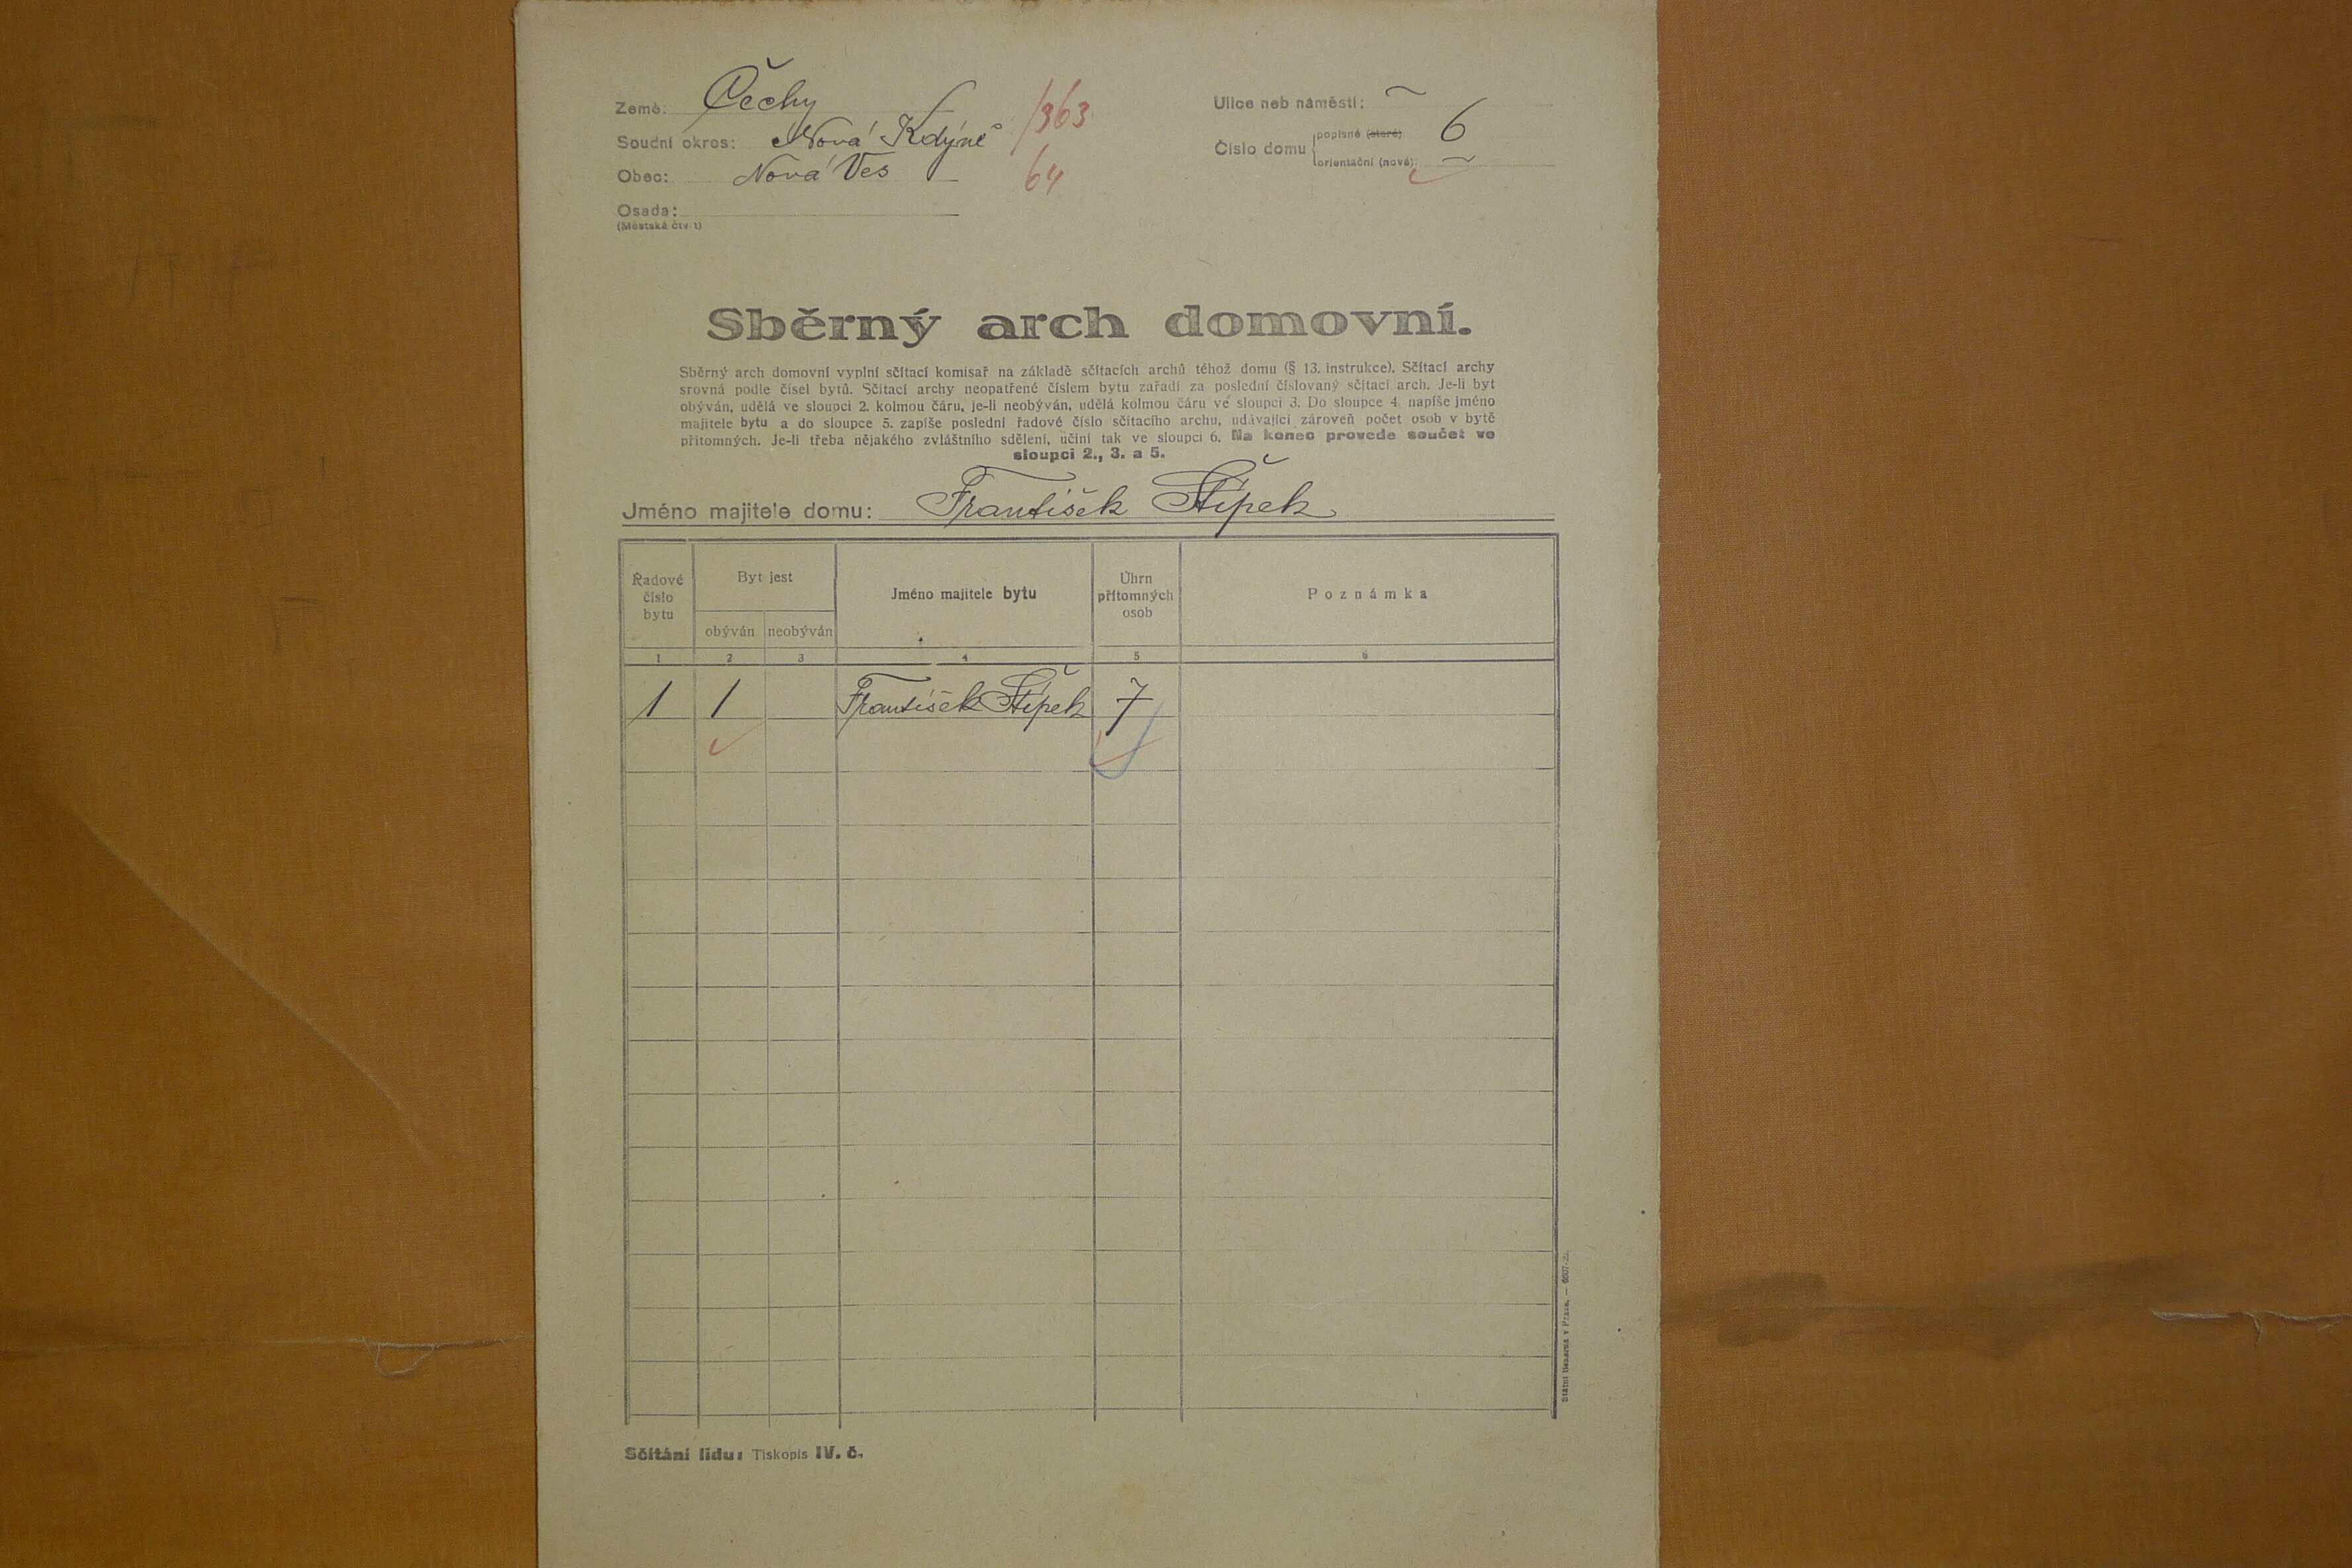 Země: Čechy
Soudní okres: Nová Kdýně
Obec: Nová Ves
Osada:
(Městská čtvrt)
1363
64
Ulice neb náměstí: ~
Číslo domu
popisné (staré) 6
orientační (nové): ~
Sběrný arch domovní.
Sběrný arch domovní vyplní sčítací komisař na základě sčítacích archů téhož domu (§ 13. instrukce). Sčítací archy
srovná podle čísel bytů. Sčítací archy neopatřené číslem bytu zařadí za poslední číslovaný sčítací arch. Je-li byt
obýván, udělá ve sloupci 2. kolmou čáru, je-li neobýván, udělá kolmou čáru ve sloupci 3. Do sloupce 4. napíše jméno
majitele bytu a do sloupce 5. zapíše poslední řadové číslo sčítacího archu, udávající zároveň počet osob v bytě
přítomných. Je-li třeba nějakého zvláštního sdělení, učiní tak ve sloupci 6. Na konec provede součet ve
sloupci 2., 3. a 5.
Jméno majitele domu: František Štípek
Řadové
číslo
bytu
Byt jest
obýván neobýván
Jméno majitele bytu
Úhrn
přítomných
osob
Poznámka
1 2 3 4 5 6
1 1 František Štípek 7
Sčítání lidu: Tiskopis IV. č.
Státní tiskárna v Praze. —